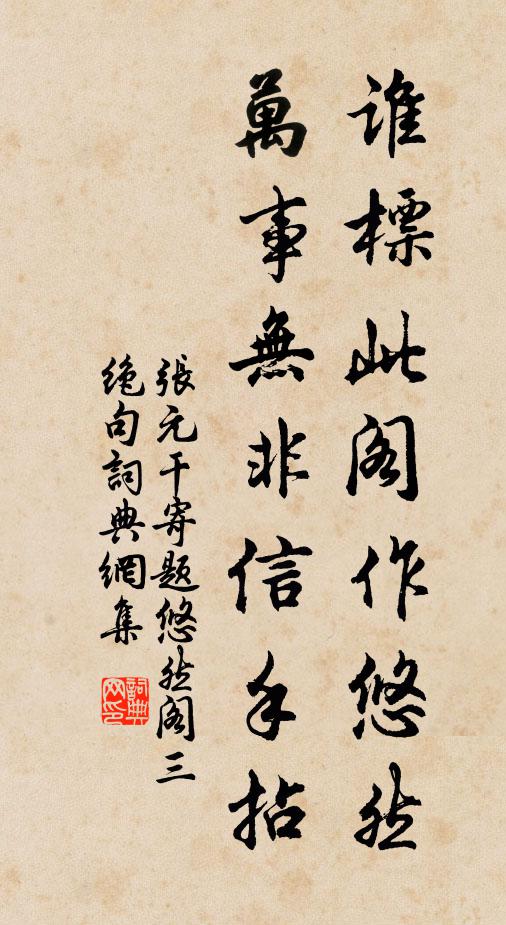 誰標此閣作悠然
萬事無非信手拈
張元干寄題悠然閣三
絕句詞典網集
詞典
网印